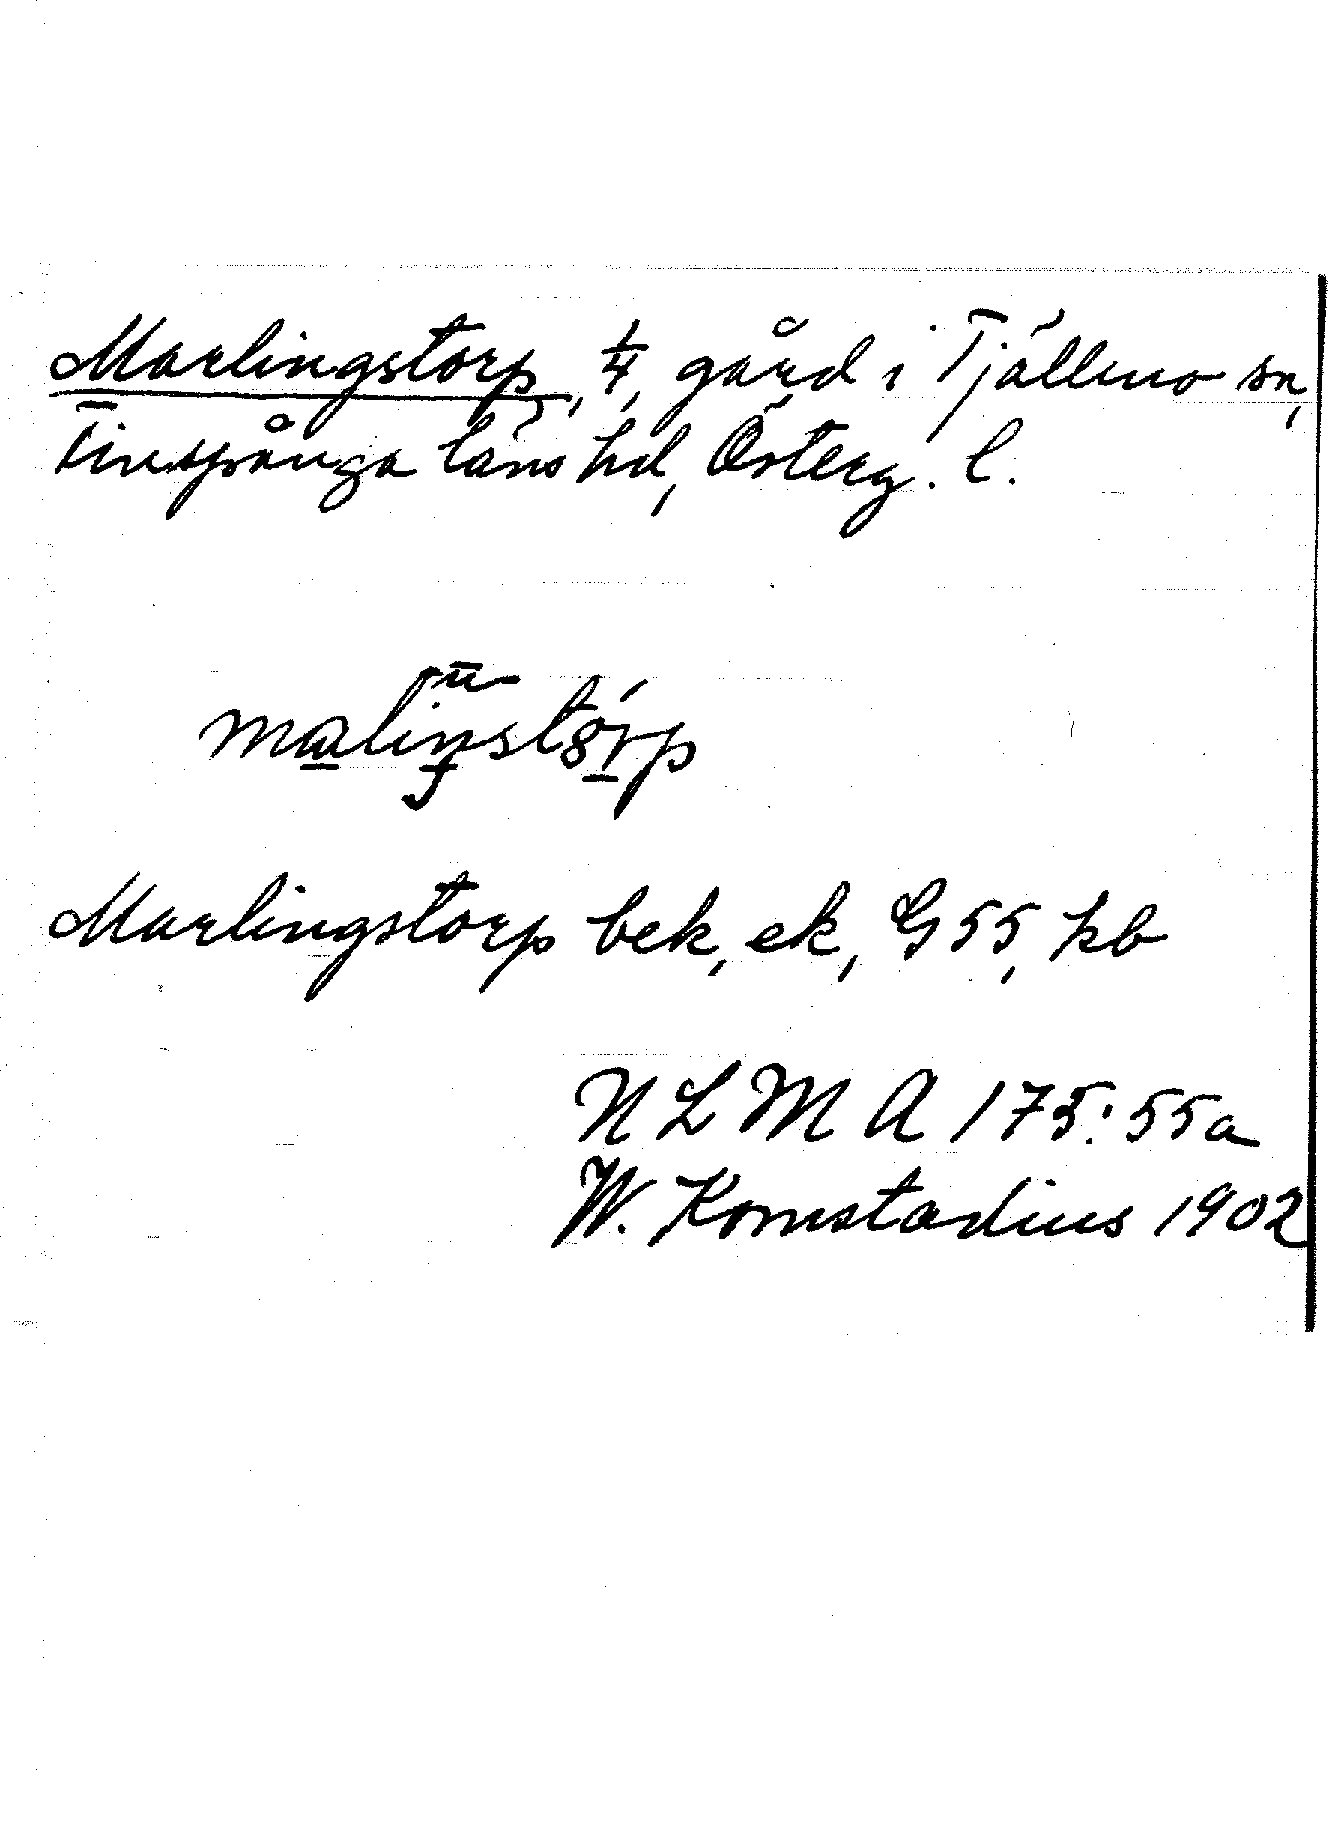 Marlingstorp, 1/4, gård i Tjällmo sn,
Finspånga läns hd, Österg. l.
Marlingstorp bek, ek, G 55, kb
N L M A 175:55a
W. Kornstadius 1902